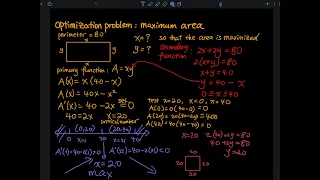 optimization problem: maximum area
perimeter = 80
x = ? so that the area is maximized
y y y = ?
x
secondary function
2x + 2y = 80
2(x+y) = 80
x + y = 40
y = 40 - x
0 ≤ x ≤ 40
primary function: A = xy
A(x) = x(40-x)
A(x) = 40x - x²
A'(x) = 40 - 2x set = 0
40 = 2x x = 20
critical number
test x = 20, x = 0, x = 40
A(0) = 0(40-0) = 0
A(20) = 20(40-20) = 400
A(40) = 40(40-40) = 0
(0,20) (20,40)
0 20 40
A'(1) = 40-2(1) > 0 A'(30) = 40-2(30) < 0
x = 20
max
x = 20 2(20) + 2y = 80
40 + 2y = 80
y = 20
20
20 20
20